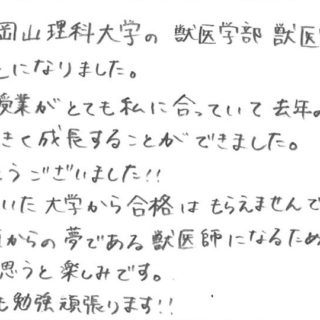 岡山理科大学の 獣医学部 獣医
とになりました。
授業がとても私に合っていて 去年の
きく成長することができました。
とうございました!!
いた大学から合格は もらえませんで
からの夢である獣医師になるため
思うと楽しみです。
も勉強頑張ります!!